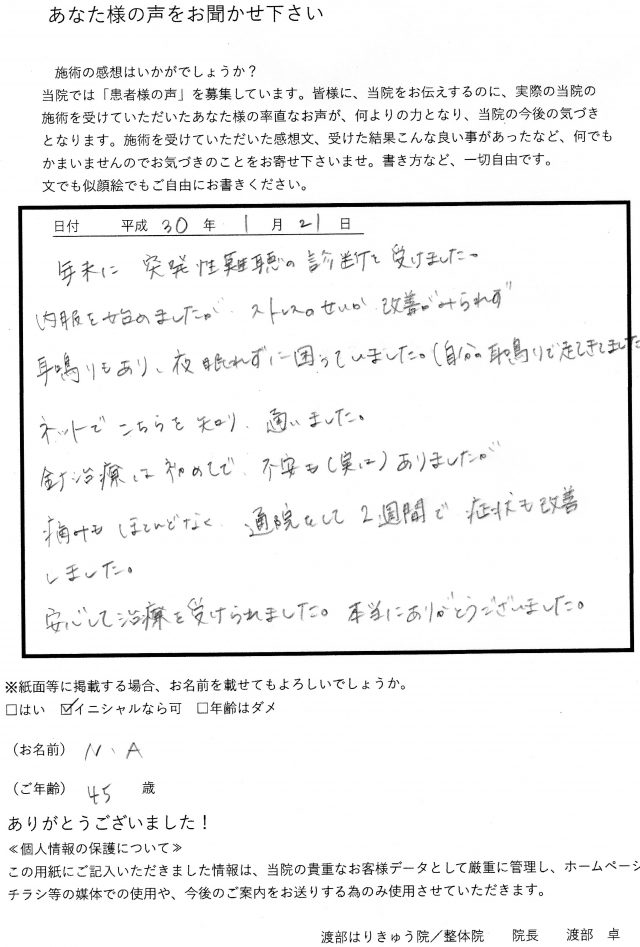 あなた様の声をお聞かせ下さい
施術の感想はいかがでしょうか？
当院では「患者様の声」を募集しています。皆様に、当院をお伝えするのに、実際の当院の
施術を受けていただいたあなた様の率直なお声が、何よりの力となり、当院の今後の気づき
となります。施術を受けていただいた感想文、受けた結果こんな良い事があったなど、何でも
かまいませんのでお気づきのことをお寄せ下さいませ。書き方など、一切自由です。
文でも似顔絵でもご自由にお書きください。
日付 平成 30 年 1 月 21 日
年末に 突発性難聴の診断を受けました。
内服を始めましたが、ストレスのせいか 改善がみられず
耳鳴りもあり、夜眠れずに困っていました。(自分の耳鳴りで起きてきました
ネットでこちらを知り、通いました。
針治療は初めてで、不安も(実は)ありましたが
痛みもほとんどなく、通院をして2週間で症状も改善
しました。
安心して治療を受けられました。本当にありがとうございました。
※紙面等に掲載する場合、お名前を載せてもよろしいでしょうか。
□はい ☑イニシャルなら可 □年齢はダメ
（お名前） N.A
（ご年齢） 45 歳
ありがとうございました！
≪個人情報の保護について≫
この用紙にご記入いただきました情報は、当院の貴重なお客様データとして厳重に管理し、ホームページ
チラシ等の媒体での使用や、今後のご案内をお送りする為のみ使用させていただきます。
渡部はりきゅう院／整体院 院長 渡部 卓